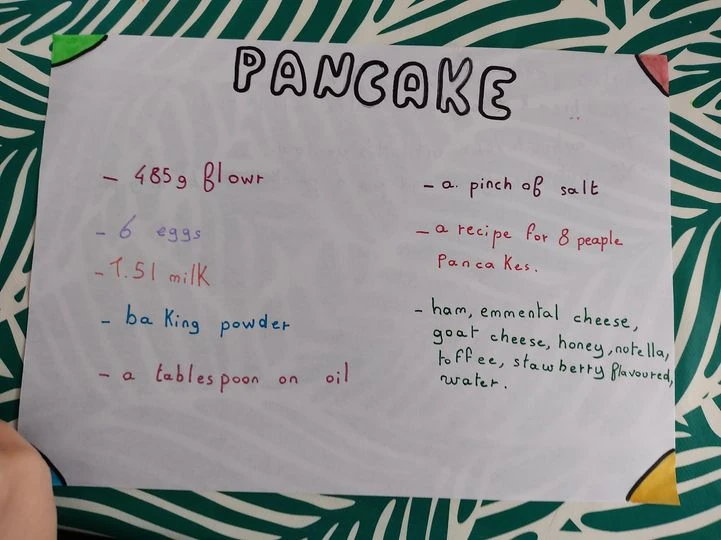 PANCAKE
- 485g flowr
- 6 eggs
- 1.5l milk
- baking powder
- a tablespoon on oil
- a pinch of salt
- a recipe for 8 peaple
pancakes.
- ham, emmental cheese,
goat cheese, honey, notella,
toffee, stawberry flavoured,
water.